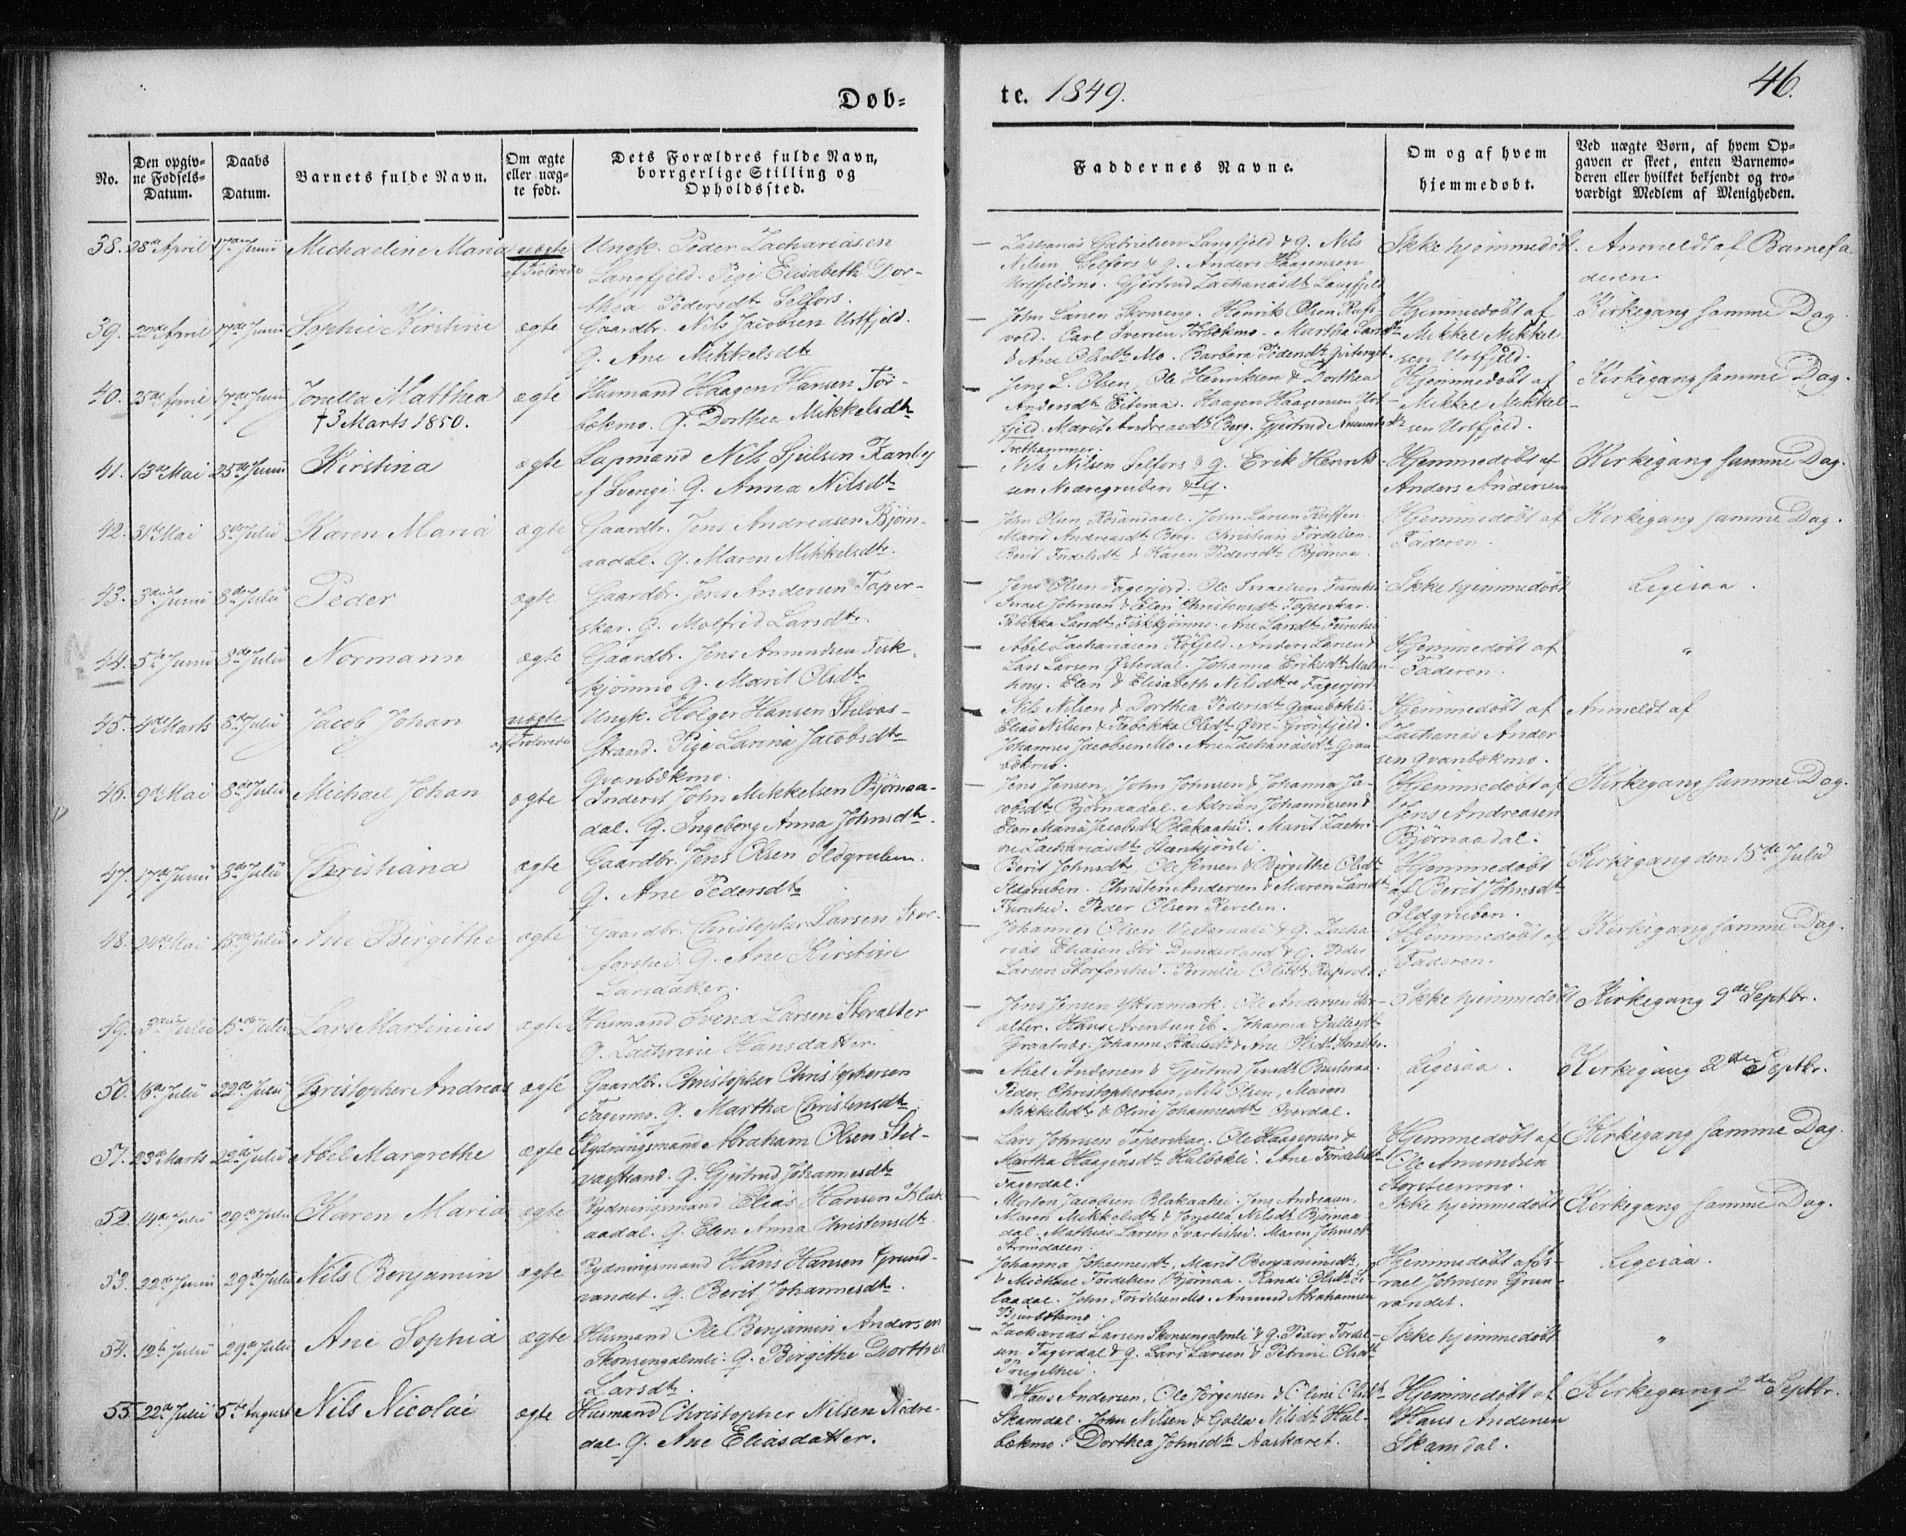 Døb-
te. 1849.
46.
No.
Den opgiv-
ne Fødsels-
Datum.
Daabs
Datum.
Barnets fulde Navn.
Om ægte
eller uæg-
te født.
Dets Forældres fulde Navn,
borrgerlige Stilling og
Opholdssted.
Faddernes Navne.
Om og af hvem
hjemmedøbt.
Ved uægte Børn, af hvem Op-
gaven er skeet, enten Barnemo-
deren eller hvilket bekjendt og tro-
værdigt Medlem af Menigheden.
38. 28de April 17de Junii Michaeline Maria uægte Ungk. Peder Zachariasen
Langfjeld. Pige Elisabeth Dor-
thea Pedersdtr Selfors.
Zacharias Gabrielsen Langfjeld & G. Nils
Nilsen Selfors & G. Anders Haagensen
Urtfjeldmo. Gjertrud Zachariasdtr Langfjeld
Ikke hjemmedøbt. Anmeldt af Barnefa-
deren
39. 22de April 17de Junii Sophie Kirstine ægte Gaardbr. Nils Jacobsen Urtfjeld.
G. Ane Mikkelsdtr
John Larsen Skonseng. Henrik Olsen Rufs-
vold. Carl Iversen
& Ane Olsdtr Mo. Barbara Pedersdtr
Hjemmedøbt af
Mikkel Mikkel-
sen Urtfjeld.
Kirkegang samme Dag.
40. 3de April 17de Junii Jonella Matthea
† 3 Marts 1850.
ægte Husmand Haagen Hansen Tør-
bækmo. G. Dorthea Mikkelsdtr
Jens L. Olsen, Ole Henriksen & Dorthea
Andersdtr Eiteraa. Haagen Haagensen Urt-
fjeld. Marit Andreasdtr Berg. Gjertrud Amundsdtr
Hjemmedøbt af
Mikkel Mikkel-
sen Urtfjeld.
Kirkegang samme Dag.
41. 13de Mai 25de Junii Kirstina ægte Lapmand Nils Sjulsen Kanby
af Sverrig. G. Anna Nilsdtr
Nils Nilsen Selfors & G. Erik Henrik-
sen Nedregruben & G.
Hjemmedøbt af
Anders Andersen
Kirkegang samme Dag.
42. 31te Mai 8de Julii Karen Maria ægte Gaardbr. Jens Andreasen Bjørn-
aadal. G. Maren Mikkelsdtr.
John Olsen Røsandaal. John Larsen
Marit Andreasdtr Berg. Christian Fordelsen
Berit Fordelsdtr & Karen Pedersdtr Bjørnaa.
Hjemmedøbt af
Faderen.
Kirkegang samme Dag.
43. 3die Junii 8de Julii Peder ægte Gaardbr. Jens Andersen Taper-
skar. G. Molfrid Larsdtr.
Jens Olsen Fagerjord. Ole Israelsen Furuhei
Israel Johnsen & Elen Christensdtr Taperskar.
Rebekka Larsdtr Fiskkjønmo. Ane Larsdtr Furuhei
Ikke hjemmedøbt Ligesaa.
44. 5te Junii 8de Julii Normann ægte Gaardbr. Jens Amundsen Fisk-
kjønmo G. Marit Olsdtr
Abel Zachariasen Røfjeld. Anders Larsen &
Lars Larsen Østerdal. Johanna Eriksdtr
Elen & Elisabeth Nilsdttre Fagerjord.
Hjemmedøbt af
Faderen.
"
45. 4de Marts 8de Julii Jacob Johan uægte Ungk. Holger Hansen Stilvas-
strand. Pige Larina Jacobsdtr
Qvanbækmo.
Nils Nilsen & Dorthea Pedersdtr Qvanbækli.
Elias Nilsen & Rebekka Olsdtr Øvre-Grønfjeld.
Johannes Jacobsen Mo. Ane Zachariasdtr Qvan-
bækmo.
Hjemmedøbt af
Zacharias Ander
sen Qvanbækmo.
Anmeldt af
46. 9de Mai 8de Julii Michael Johan ægte Inderst John Mikkelsen Bjørnaa-
dal. G. Ingeborg Anna Johnsdtr.
Jens Jensen, John Johnsen & Johanna Ja-
cobsdtr Bjørnaadal. Adrian Johannesen &
Elen Maria Jacobsdtr Blakaahei. Marit
Zachariasdtr
Hjemmedøbt af
Jens Andreasen
Bjørnaadal.
Kirkegang samme Dag.
47. 17de Junii 8de Julii Christiana ægte Gaardbr. Jens Olsen Ildgruben.
G. Ane Pedersdtr
Berit Johnsdtr, Ole Jensen & Birgithe Olsdtr
Ildgruben. Christen Andersen & Maren Larsdtr
Furuhei. Peder Olsen Revelen.
Hjemmedøbt
af Berit Johnsdtr
Ildgruben.
Kirkegang den 15de Julii
48. 24de Mai 15de Julii Ane Birgithe ægte Gaardbr. Christopher Larsen Stor-
forshei. G. Ane Kirstine
Larsdatter.
Johannes Olsen & G. Zacha-
rias Eliasen Dunderland & G. Peder
Larsen Storforshei.
Hjemmedøbt af
Faderen.
Kirkegang samme Dag.
49. 3die Julii 15de Julii Lars Martinius ægte Husmand Svend Larsen Storalter
G. Zachrine Hansdatter.
Jens Jensen Ytteramark. Ole Andersen Stor-
alter. Hans Arentsen ib. Johanna
Johanne Hansdtr & Ane Olsdtr
Ikke hjemmedøbt Kirkegang 9de Septbr.
50. 16de Julii 22de Julii Christopher Andreas ægte Gaardbr. Christopher Christophersen
Fagermo. G. Martha Christensdtr
Abel Andersen & Gjertrud Jensdtr
Peder Christophersen, Nils Olsen, Maren
Mikkelsdtr & Oline Johannesdtr Overdal.
Ligesaa. Kirkegang 2den Septbr.
51. 23de Marts 22de Julii Abel Margrethe ægte Rydningsmand Abraham Olsen Stil-
vasstrand. G. Gjertrud Johannesdtr
Lars Johnsen Taperskar. Ole Haagensen &
Martha Haagensdtr Hulbækli. Ane Fordelsdtr
Fagerdal.
Hjemmedøbt af
Ole Amundsen
Kirkegang samme Dag.
52. 14de Julii 29de Julii Karen Maria ægte Rydningsmand Elias Hansen Blak-
aadal. G. Elen Anna Christensdtr
Morten Jacobsen Blakaahei. Jens Andreasen,
Maren Mikkelsdtr & Jorella Nilsdtr Bjørnaa
dal. Mathias Larsen Svartishei. Maren Johnsdtr
Strømdalen.
Ikke hjemmedøbt Kirkegang samme Dag.
53. 22de Junii 29de Julii Nils Benjamin ægte Rydningsmand Hans Hansen Grund-
vandet. G. Berit Johannesdtr
Johanna Johannesdtr, Marit Benjaminsdtr,
& Michael Fordelsen Bjørnaa. Randi Olsdtr
John Fordelsen Mo. Amund Abrahamsen
Hjemmedøbt af Is-
rael Johnsen Grun-
vandet.
Ligesaa.
54. 12te Julii 29de Julii Ane Sophia ægte Husmand Ole Benjamin Andersen
Skonsengalmli. G. Birgithe Dorthea
Larsdtr.
Zacharias Larsen Skonsengalmli & G. Peder Fordel-
sen Fagerdal & G. Lars Larsen & Petrine Olsdtr
Ikke hjemmedøbt "
55. 22de Julii 5te August Nils Nicolai ægte Husmand Christopher Nilsen Nedre-
dal. G. Ane Eliasdatter.
Hans Andersen, Ole Jørgensen & Oline Olsdtr
Skamdal. John Nilsen & Golla Nilsdtr Hul-
bækmo. Dorthea Johnsdtr Aaskaret.
Hjemmedøbt af
Hans Andersen
Skamdal.
Kirkegang 2de Septbr.